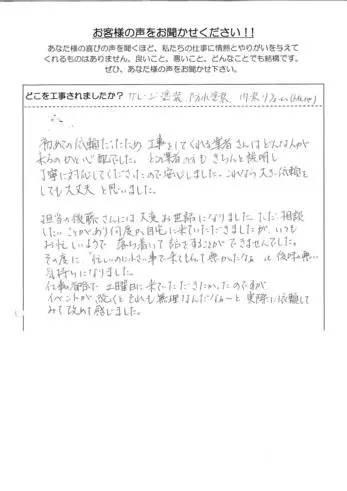 お客様の声をお聞かせください!!
あなた様の喜びの声を聞くほど、私たちの仕事に情熱とやりがいを与えて
くれるものはありません。良いこと、悪いこと、どんなことでも結構です。
ぜひ、あなた様の声をお聞かせ下さい。
どこを工事されましたか? ガレージ塗装 防水塗装 内装リフォーム
初めての依頼だったため 工事をしてくれる業者さんはどんな人が
来るのかと心配でした。どの業者の方も きちんと説明し
丁寧に対応してくださったので安心しました。これなら大きい依頼を
しても大丈夫と思いました。
担当の後藤さんには大変お世話になりました。ただ、相談
したいことがあり何度か自宅に来ていただきましたが、いつも
お忙しいようで 落ち着いて話をすることができませんでした。
その度に「忙しいのに小さい事で来てもらって悪かったなぁ」と後味の悪い
気持ちになりました。
仕事の都合で 土曜日に来ていただきたかったのですが
イベントが続くとそれも無理なんだなぁーと 実際に依頼して
みて改めて感じました。